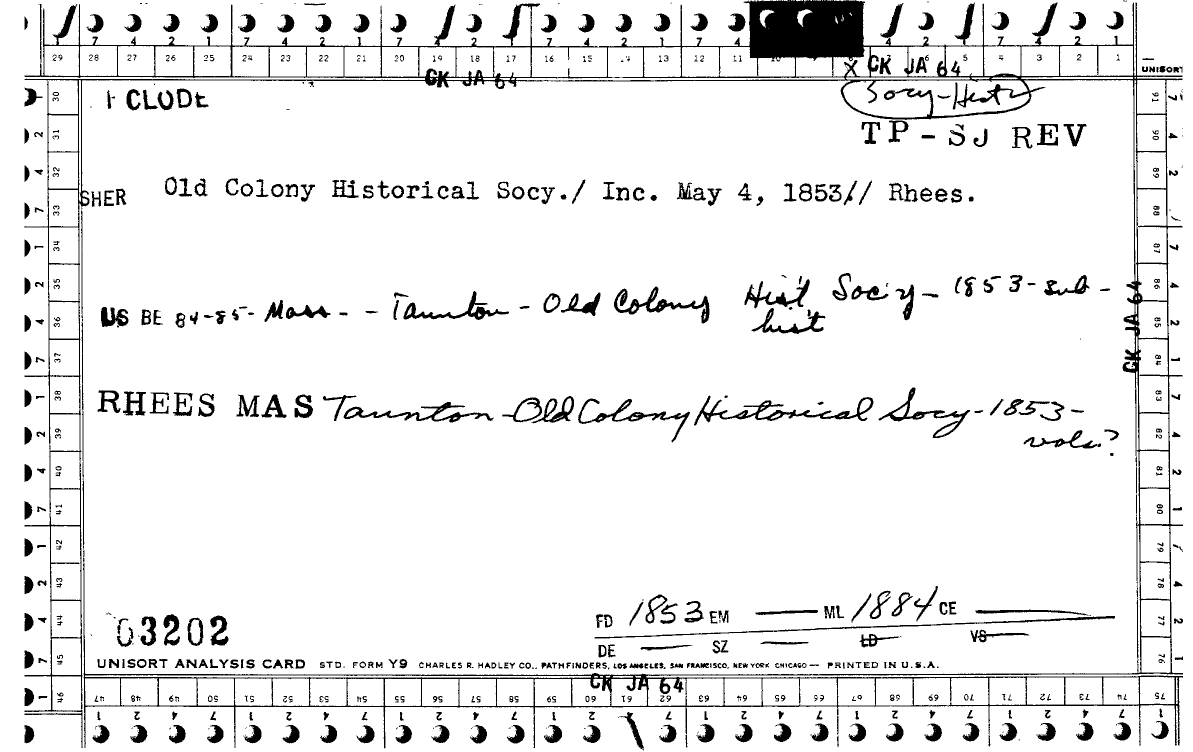 7 4 2 1 7 4 2 1 7 4 2 1 7 4 2 1 7 4 4 2 1 7 4 2 1
29 28 27 26 25 24 23 22 21 20 19 18 17 16 15 14 13 12 11 10 5 4 3 2 1
CK JA 64
X CK JA 64
UNISORT
CLUDE
Socy-Hist
TP-SJ REV
SHER Old Colony Historical Socy./ Inc. May 4, 1853// Rhees.
US BE 84-85- Mass- - Taunton - Old Colony Hist'l Soc'y - 1853 - sub -
hist
CK JA 64
RHEES MAS Taunton-Old Colony Historical Socy-1853-
vols?
03202
FD 1853 EM — ML 1884 CE —
DE — SZ — LD VS
UNISORT ANALYSIS CARD STD. FORM Y9 CHARLES R. HADLEY CO., PATHFINDERS, LOS ANGELES, SAN FRANCISCO, NEW YORK CHICAGO — PRINTED IN U.S.A.
CK JA 64
30 31 32 33 34 35 36 37 38 39 40 41 42 43 44 45 46
91 90 89 88 87 86 85 84 83 82 81 80 79 78 77 76 75
47 48 49 50 51 52 53 54 55 56 57 58 59 60 61 62 63 64 65 66 67 68 69 70 71 72 73 74
1 2 4 7 1 2 4 7 1 2 4 7 1 2 4 7 1 2 4 7 1 2 4 7 1 2 4 7